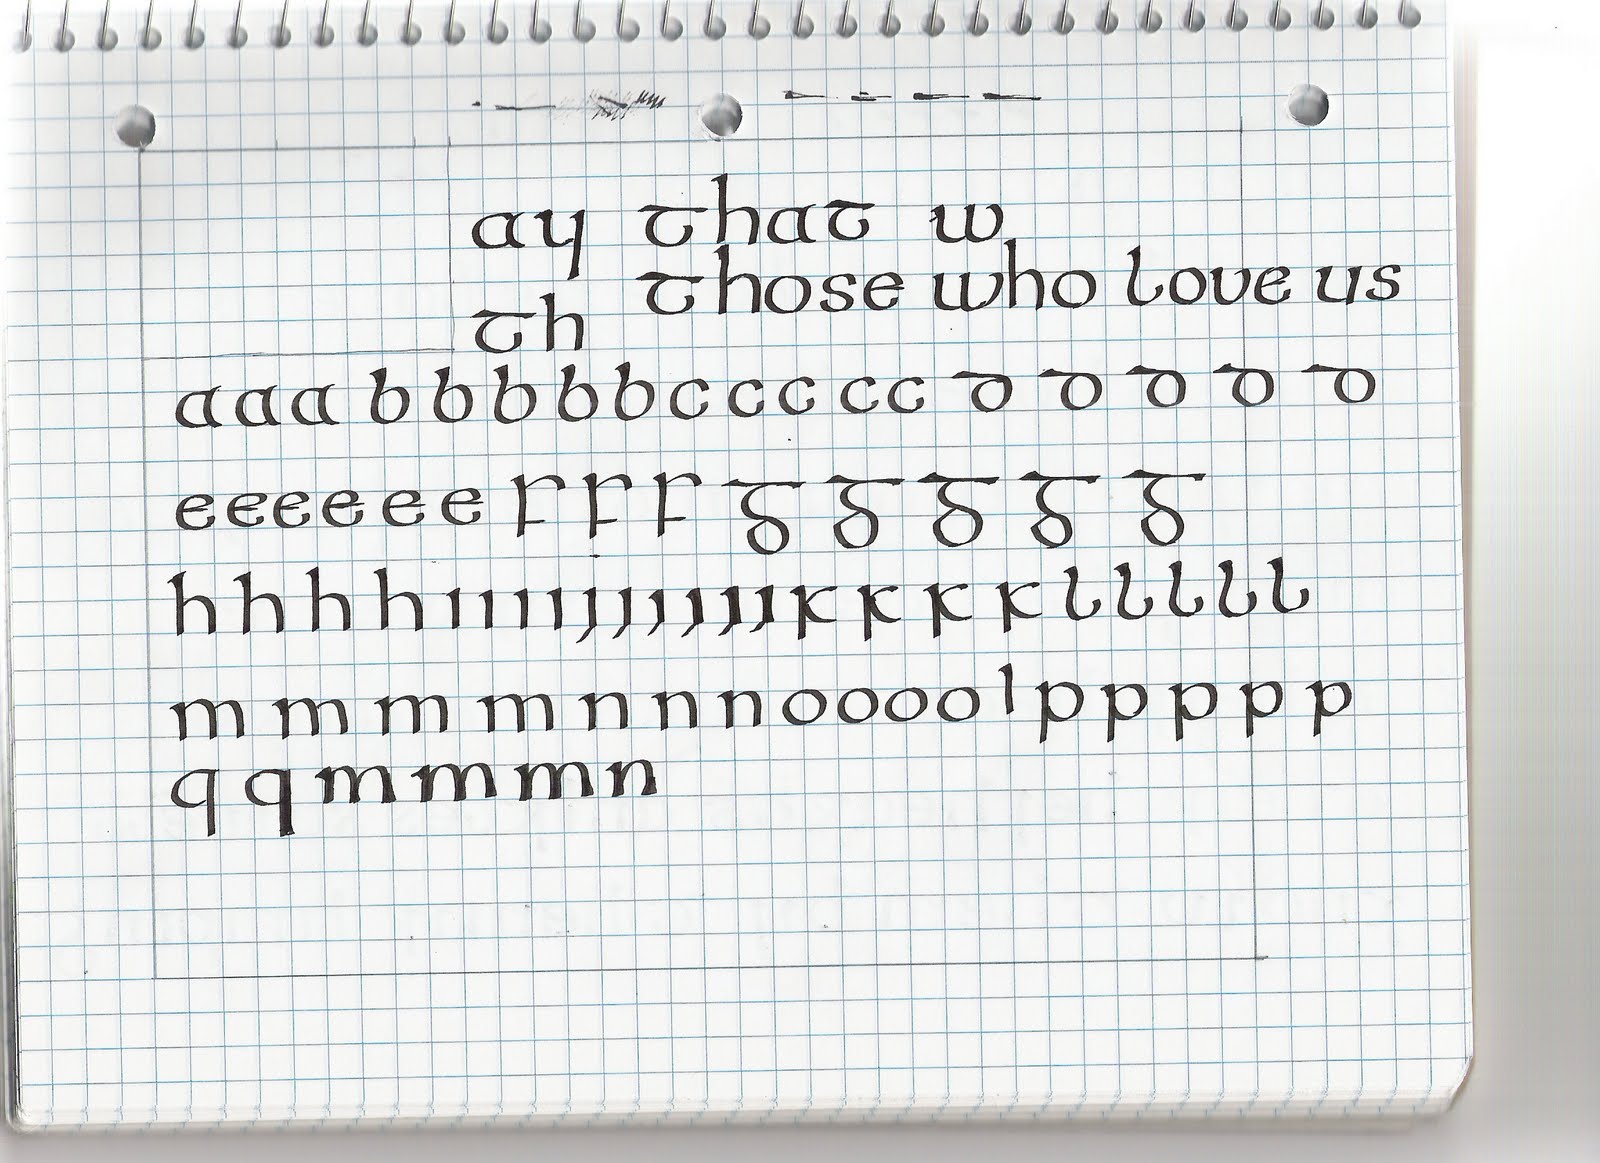 ay that w
those who love us
th
aaa bbbbbccc cc d d d d d
eeee e e f f f g g g g g
h h h h ı ı ı ı j j j j j j k k k k l l l l l
m m m m n n n o o o o l p p p p p
q q m m m n